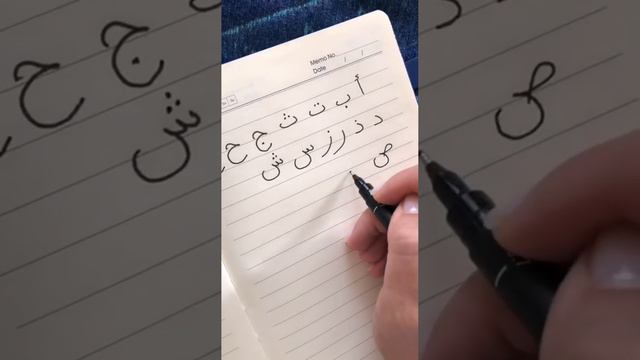 Memo No.
Date / /
أ ب ت ث ج ح
د ذ ر ز س ش
ص